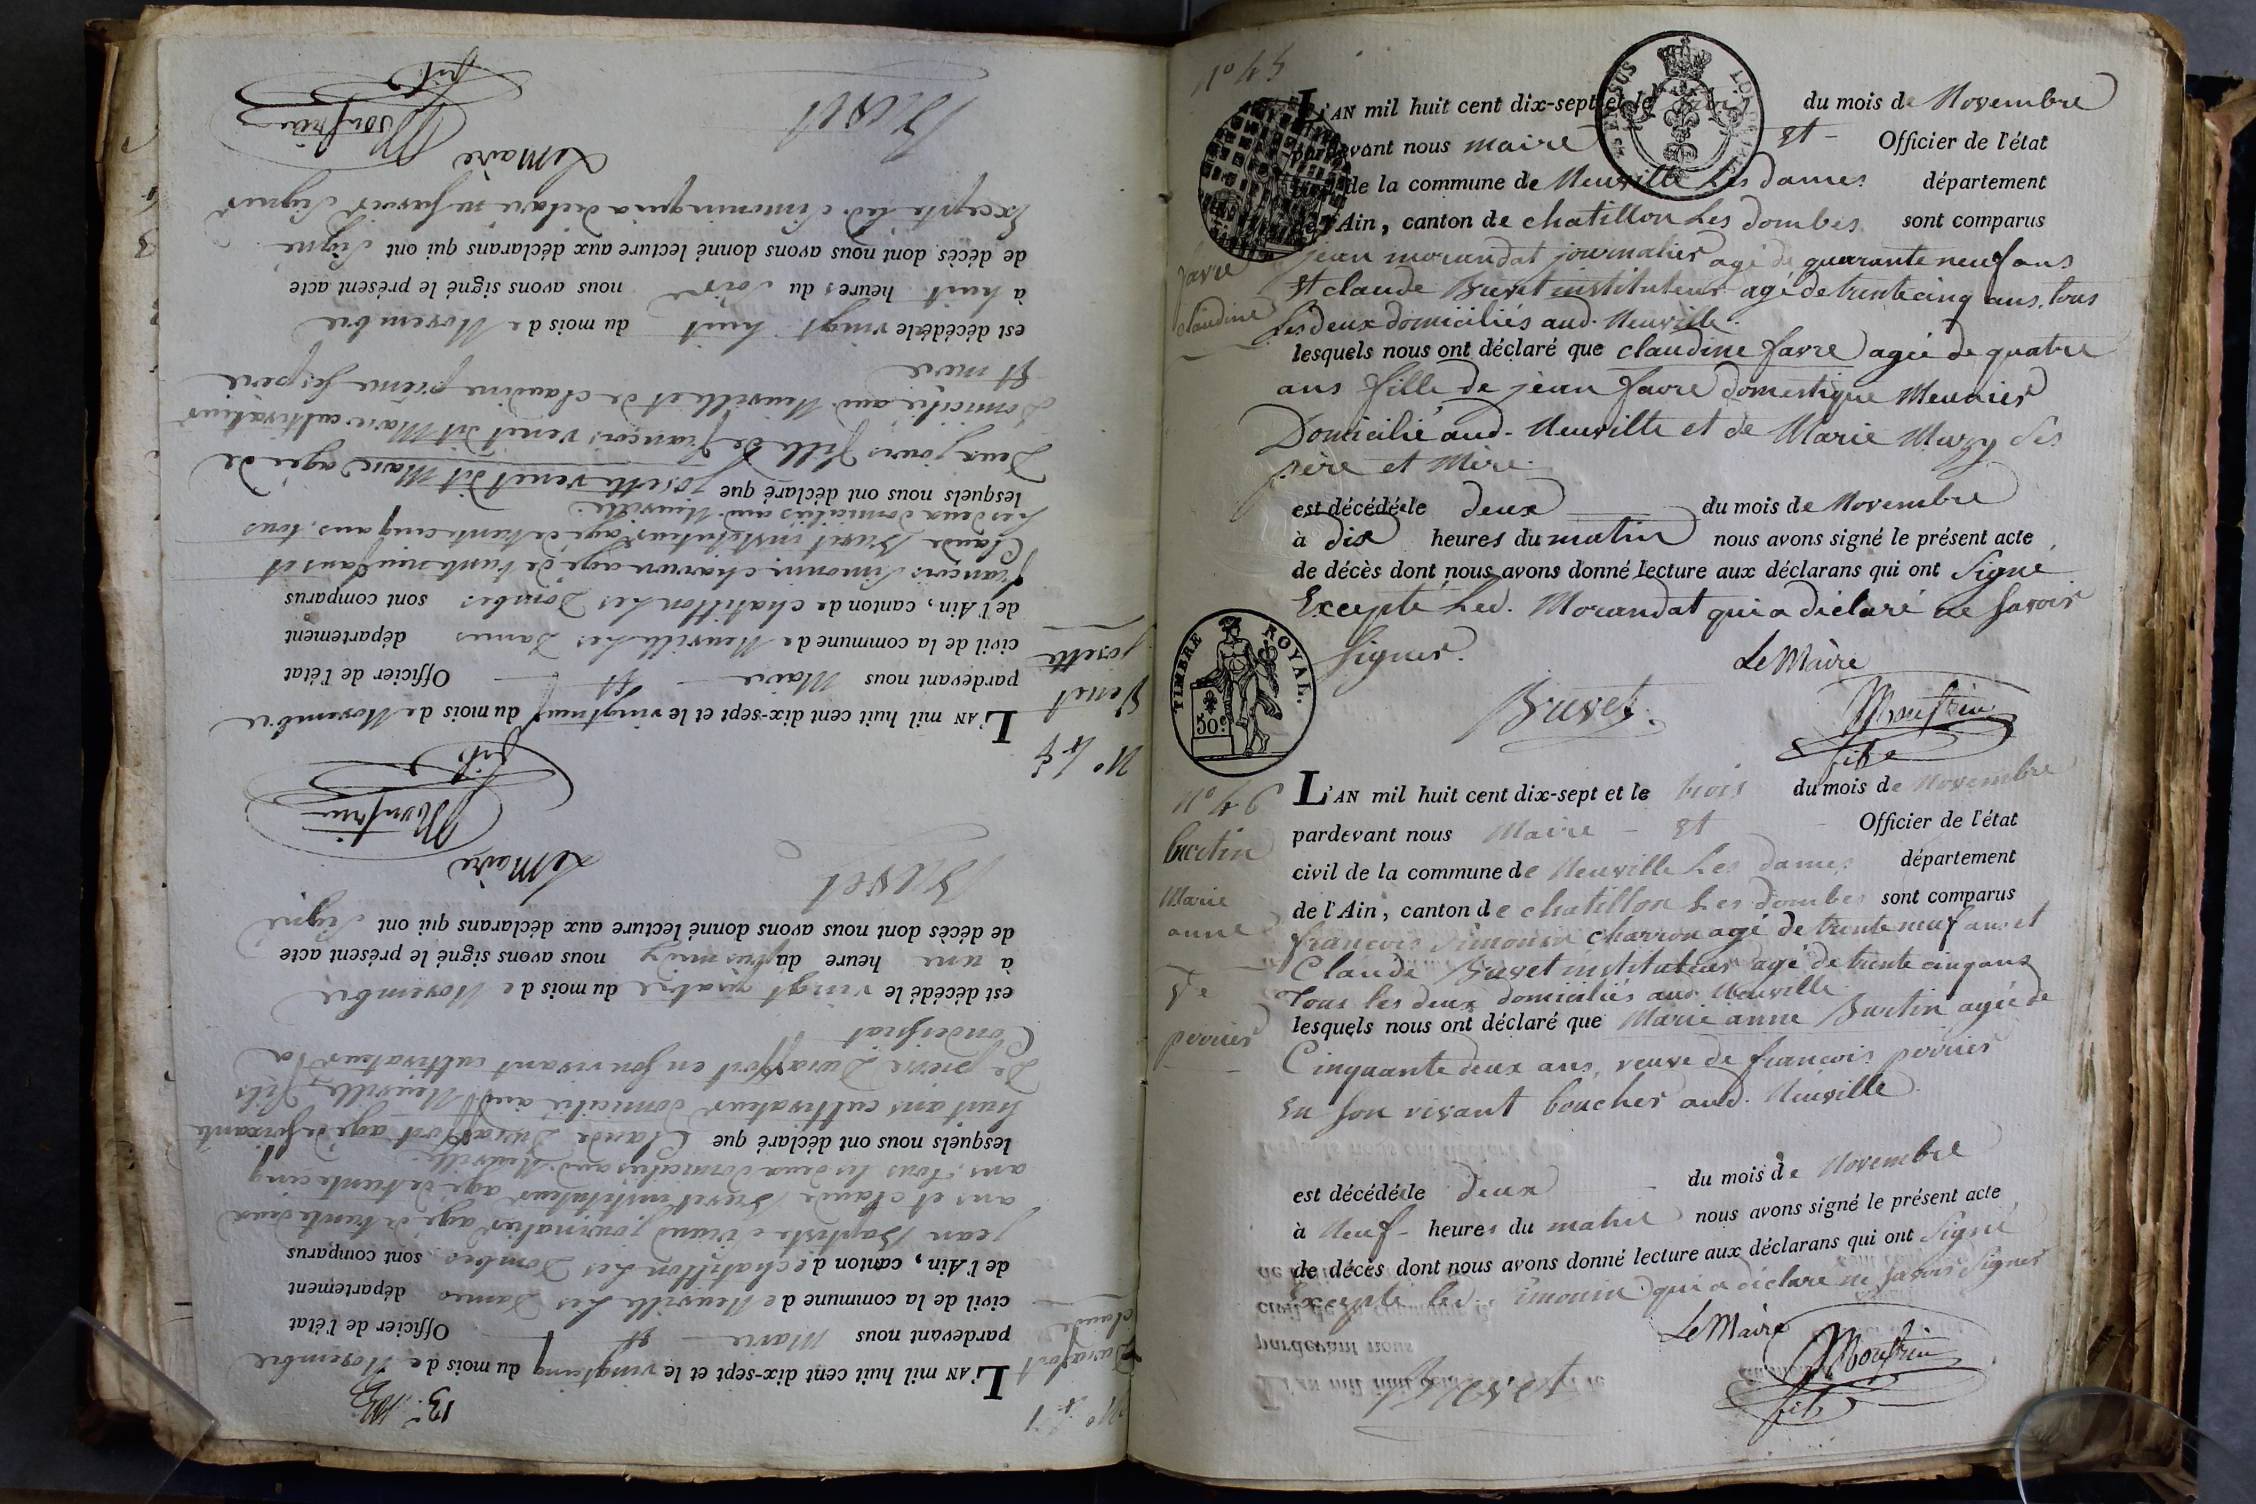 N° 45
EN SUS
L'AN mil huit cent dix-sept et le trois du mois de Novembre
pardevant nous maire et Officier de l'état
civil de la commune de Neuville Les dames département
de l'Ain, canton de chatillon Les dombes sont comparus
jean morandat journalier agé de quarante neuf ans
Et claude Buvet instituteur agé de trente cinq ans, tous
Les deux domiciliés aud. Neuville.
favre
claudine
lesquels nous ont déclaré que claudine favre agée de quatre
ans fille de jean favre domestique Meunier
Domicilié aud. Neuville et de Marie Mury Ses
père et Mère.
est décédée le deux du mois de Novembre
à dix heures du matin nous avons signé le présent acte
de décès dont nous avons donné lecture aux déclarans qui ont Signé
Excepté Led. Morandat qui a déclaré ne Savoir
Signer.
Le Maire
Buvet
Monfrin
fils
TIMBRE ROYAL.
50c
N° 46
burtin
Marie
anne
Ve
perrier
L'AN mil huit cent dix-sept et le trois du mois de Novembre
pardevant nous Maire et Officier de l'état
civil de la commune de Neuville Les dames département
de l'Ain, canton de chatillon Les dombes sont comparus
francois Simonin charron agé de trente neuf ans et
Claude Buvet instituteur agé de trente cinq ans
Tous les deux domiciliés aud. Neuville
lesquels nous ont déclaré que Marie anne Burtin agée de
Cinquante deux ans, veuve de francois perrier
En Son vivant boucher aud. Neuville
est décédée le deux du mois de Novembre
à Neuf heures du matin nous avons signé le présent acte
de décès dont nous avons donné lecture aux déclarans qui ont Signé
Excepté led. Simonin qui a déclaré ne Savoir Signer
Le Maire
Buvet
Monfrin
fils
L'AN mil huit cent dix-sept et le vingt cinq du mois de Novembre
pardevant nous Maire et Officier de l'état
civil de la commune de Neuville Les Dames département
de l'Ain, canton de chatillon Les Dombes sont comparus
Jean Baptiste journalier agé de trente deux
ans et claude Buvet instituteur agé de trente cinq
ans, tous les deux domiciliés aud. Neuville.
lesquels nous ont déclaré que Claude Duraffort agé de soixante
huit ans cultivateur domicilié aud. Neuville, fils
De pierre Duraffort en Son vivant cultivateur a
Condeissiat
est décédé le vingt quatre du mois de Novembre
à une heure nous avons signé le présent acte
de décès dont nous avons donné lecture aux déclarans qui ont Signé
Le Maire
Buvet
Monfrin
fils
Venet
josette
L'AN mil huit cent dix-sept et le vingt neuf du mois de Novembre
pardevant nous Maire et Officier de l'état
civil de la commune de Neuville Les Dames département
de l'Ain, canton de chatillon Les Dombes sont comparus
francois Simonin charron agé de trente neuf ans et
Claude Buvet instituteur agé de trente cinq ans, tous
Les deux domiciliés aud. Neuville.
lesquels nous ont déclaré que josette venet dit Marc agée de
Deux jours fille de francois venet dit Marc cultivateur
Domicilié aud. Neuville et de claudine Ses père
Et mere
est décédée le vingt huit du mois de Novembre
à huit heures du Soir nous avons signé le présent acte
de décès dont nous avons donné lecture aux déclarans qui ont Signé
Excepté led. Simonin qui a déclaré ne Savoir Signer
Le Maire
Buvet
Monfrin
fils